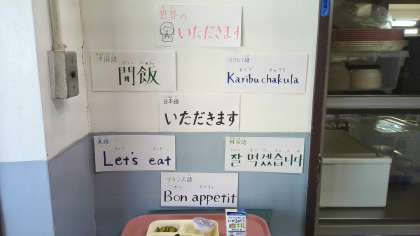 世界の
いただきます
中国語
開飯
スワヒリ語
Karibu chakula
日本語
いただきます
英語
Let's eat
韓国語
잘 먹겠습니다
フランス語
Bon appetit